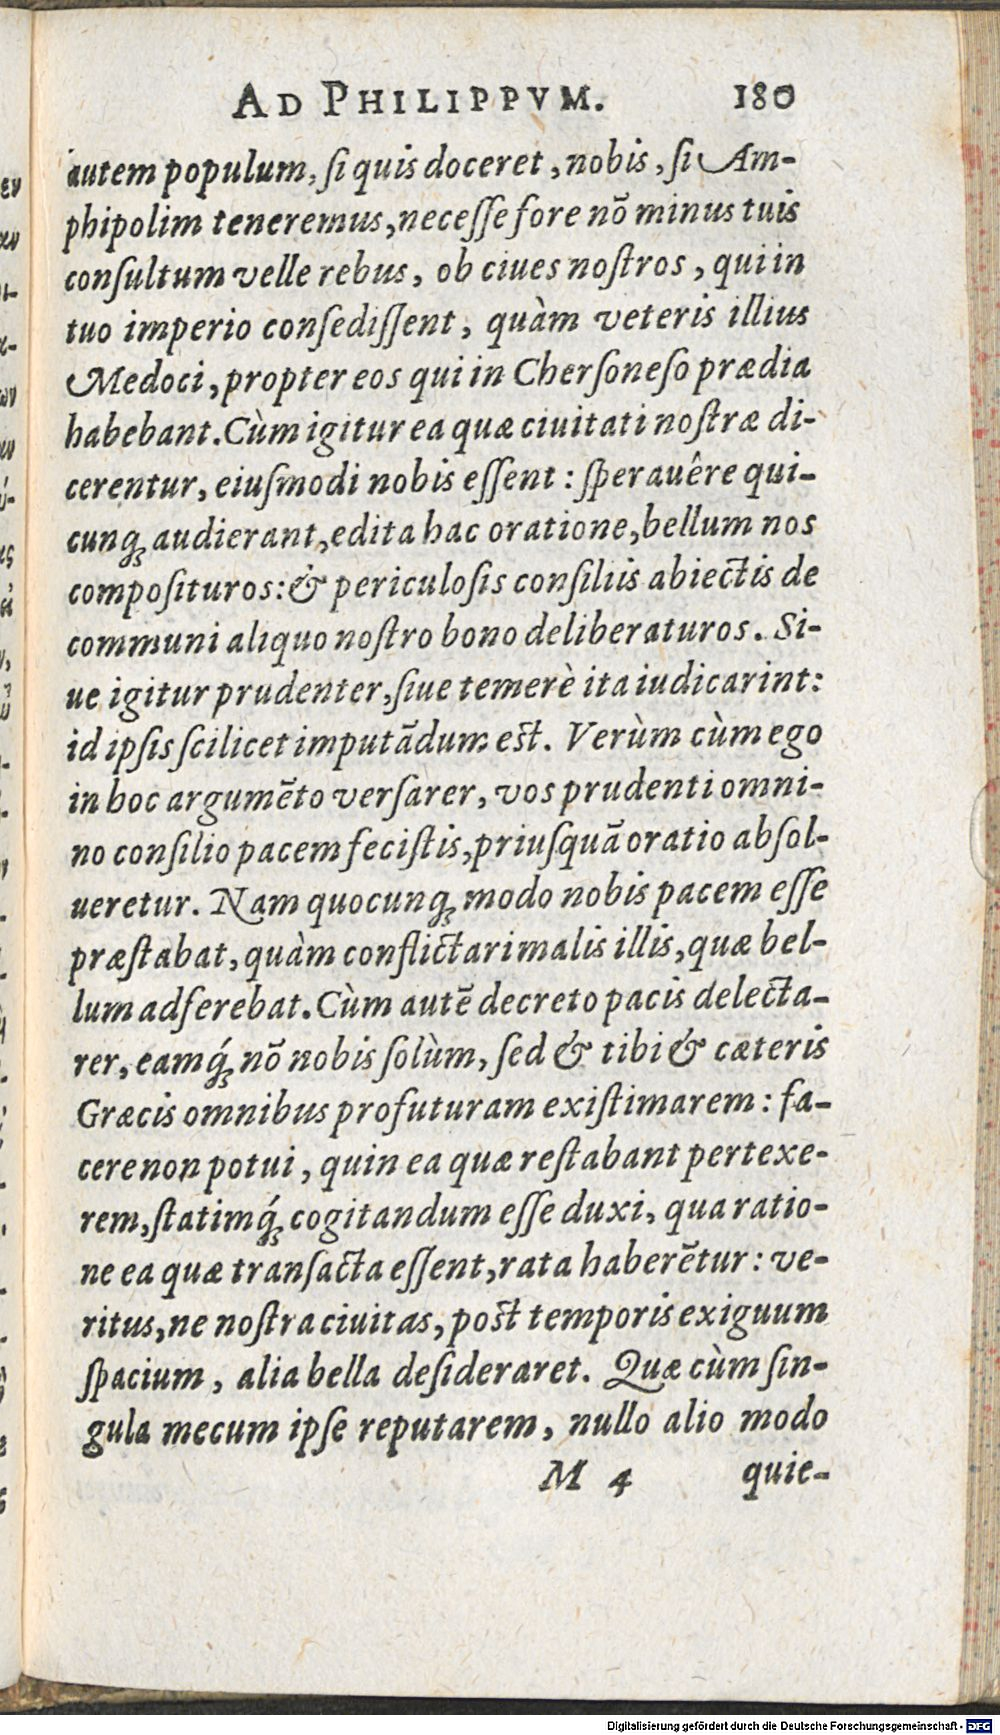 AD PHILIPPVM. 180
autem populum, ſi quis doceret, nobis, ſi Am-
phipolim teneremus, neceſſe fore nõ minus tuis
conſultum velle rebus, ob ciues noſtros, qui in
tuo imperio conſediſſent, quàm veteris illius
Medoci, propter eos qui in Cherſoneſo prædia
habebant. Cùm igitur ea quæ ciuitati noſtræ di-
cerentur, eiuſmodi nobis eſſent: ſperauêre qui-
cunq; audierant, edita hac oratione, bellum nos
compoſituros: & periculoſis conſiliis abiectis de
communi aliquo noſtro bono deliberaturos. Si-
ue igitur prudenter, ſiue temerè ita iudicarint:
id ipſis ſcilicet imputãdum eſt. Verùm cùm ego
in hoc argumẽto verſarer, vos prudenti omni-
no conſilio pacem feciſtis, priuſquã oratio abſol-
ueretur. Nam quocunq; modo nobis pacem eſſe
præſtabat, quàm conflictari malis illis, quæ bel-
lum adferebat. Cùm autẽ decreto pacis delecta-
rer, eamq́; nõ nobis ſolùm, ſed & tibi & cæteris
Græcis omnibus profuturam exiſtimarem: fa-
cere non potui, quin ea quæ reſtabant pertexe-
rem, ſtatimq́; cogitandum eſſe duxi, qua ratio-
ne ea quæ tranſacta eſſent, rata haberẽtur: ve-
ritus, ne noſtra ciuitas, poſt temporis exiguum
ſpacium, alia bella deſideraret. Quæ cùm ſin-
gula mecum ipſe reputarem, nullo alio modo
M 4 quie-
Digitalisierung gefördert durch die Deutsche Forschungsgemeinschaft - DFG